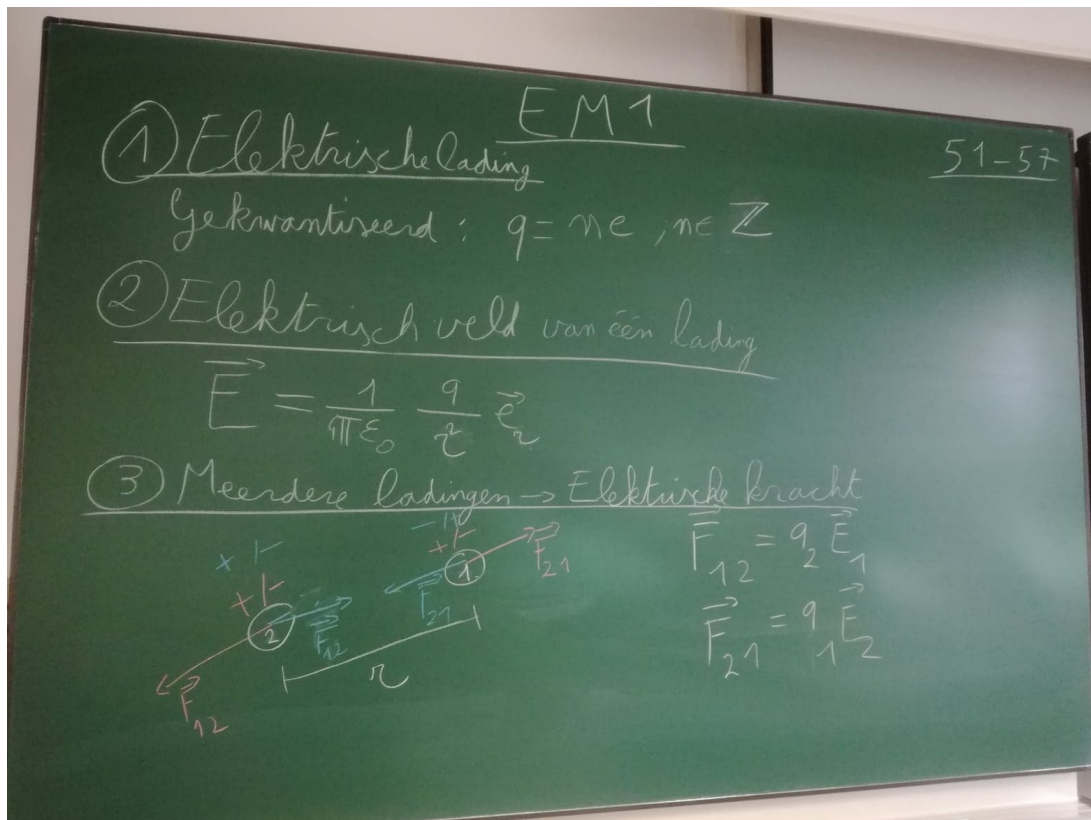 EM1
51-57
① Elektrische lading
Gekwantiseerd : q = ne , n ∈ ℤ
② Elektrisch veld van één lading
E⃗ = 1/(πε₀) q/r e⃗r
③ Meerdere ladingen → Elektrische kracht
- / +
+ / -
+ / -
+ / -
1
F⃗21
F⃗21
2
F⃗12
F⃗12
r
F⃗12 = q2 E⃗1
F⃗21 = q1 E⃗2